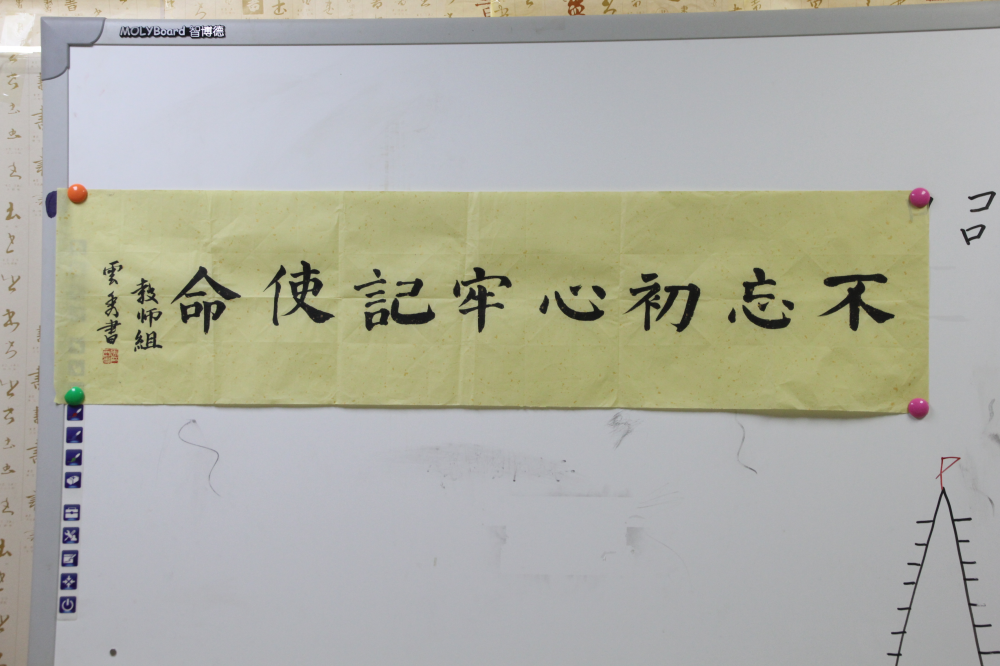 MOLYBoard 智博德
不忘初心牢記使命
教師組
雲秀書
P